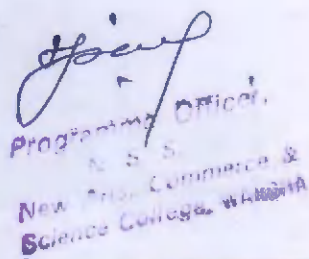 Programme Officer,
N. S. S.
New Arts, Commerce &
Science College, WARDHA